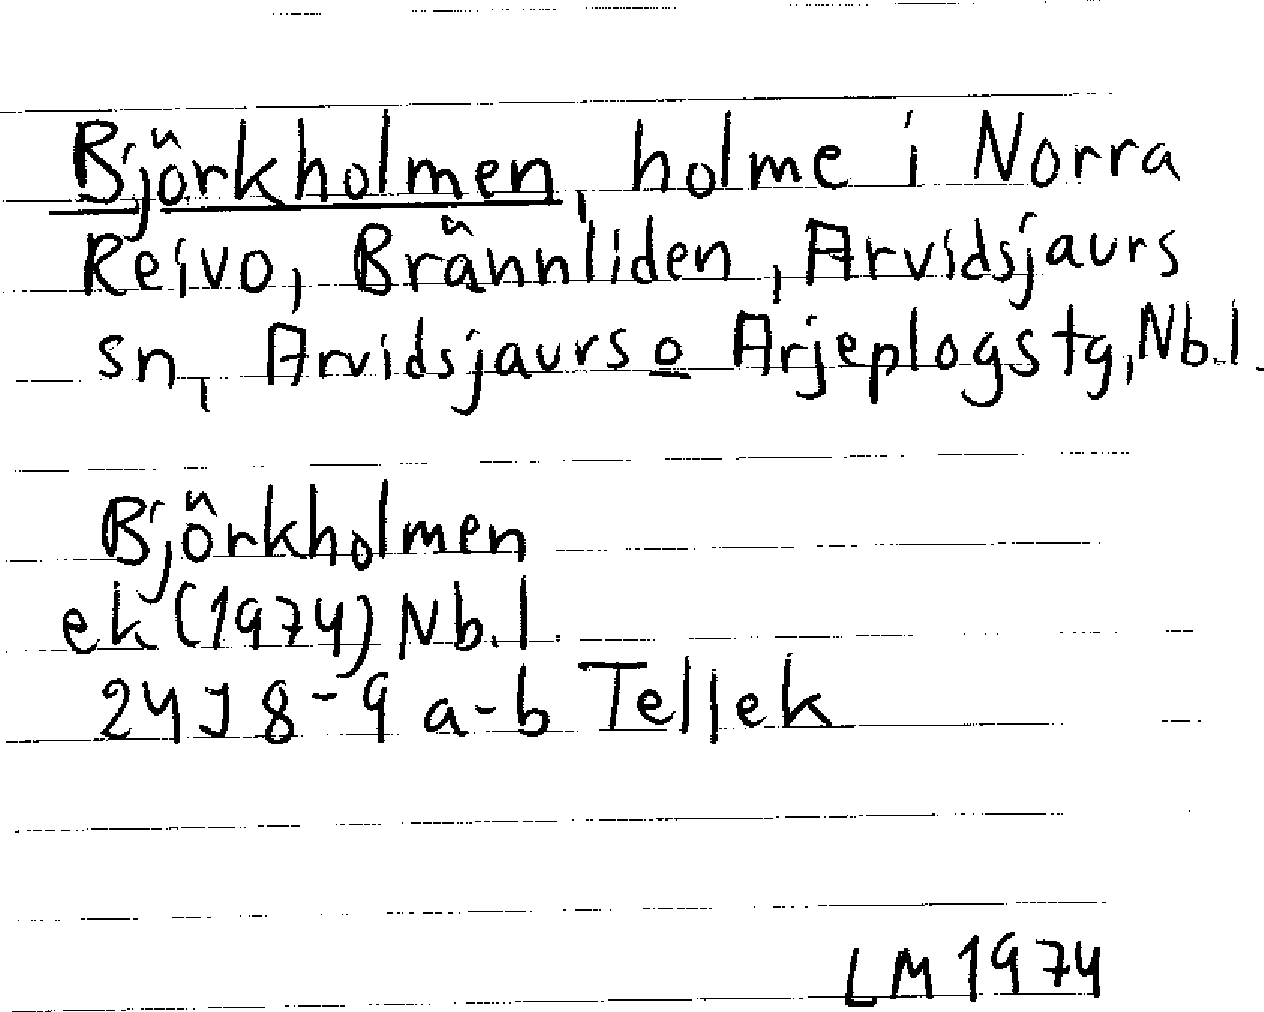 Björkholmen, holme i Norra
Reivo, Brännliden, Arvidsjaurs
sn, Arvidsjaurs o Arjeplogs tg, Nb.l.
Björkholmen
ek (1974) Nb.l.
24J 8-9 a-b Tellek
LM 1974